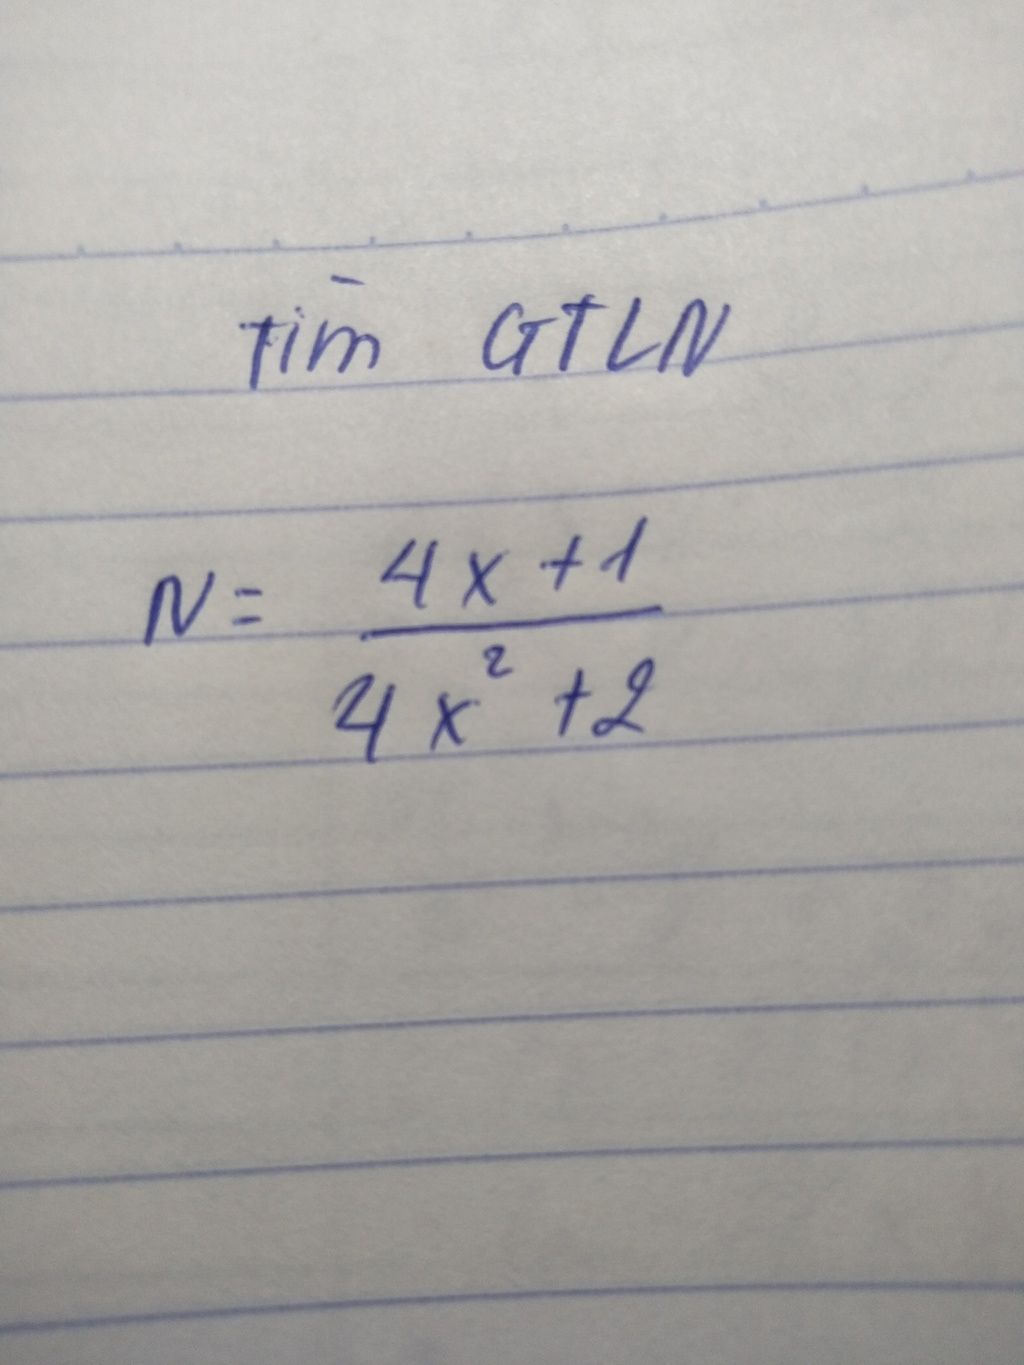 Tìm GTLN
N = \frac{4x+1}{4x^2+2}